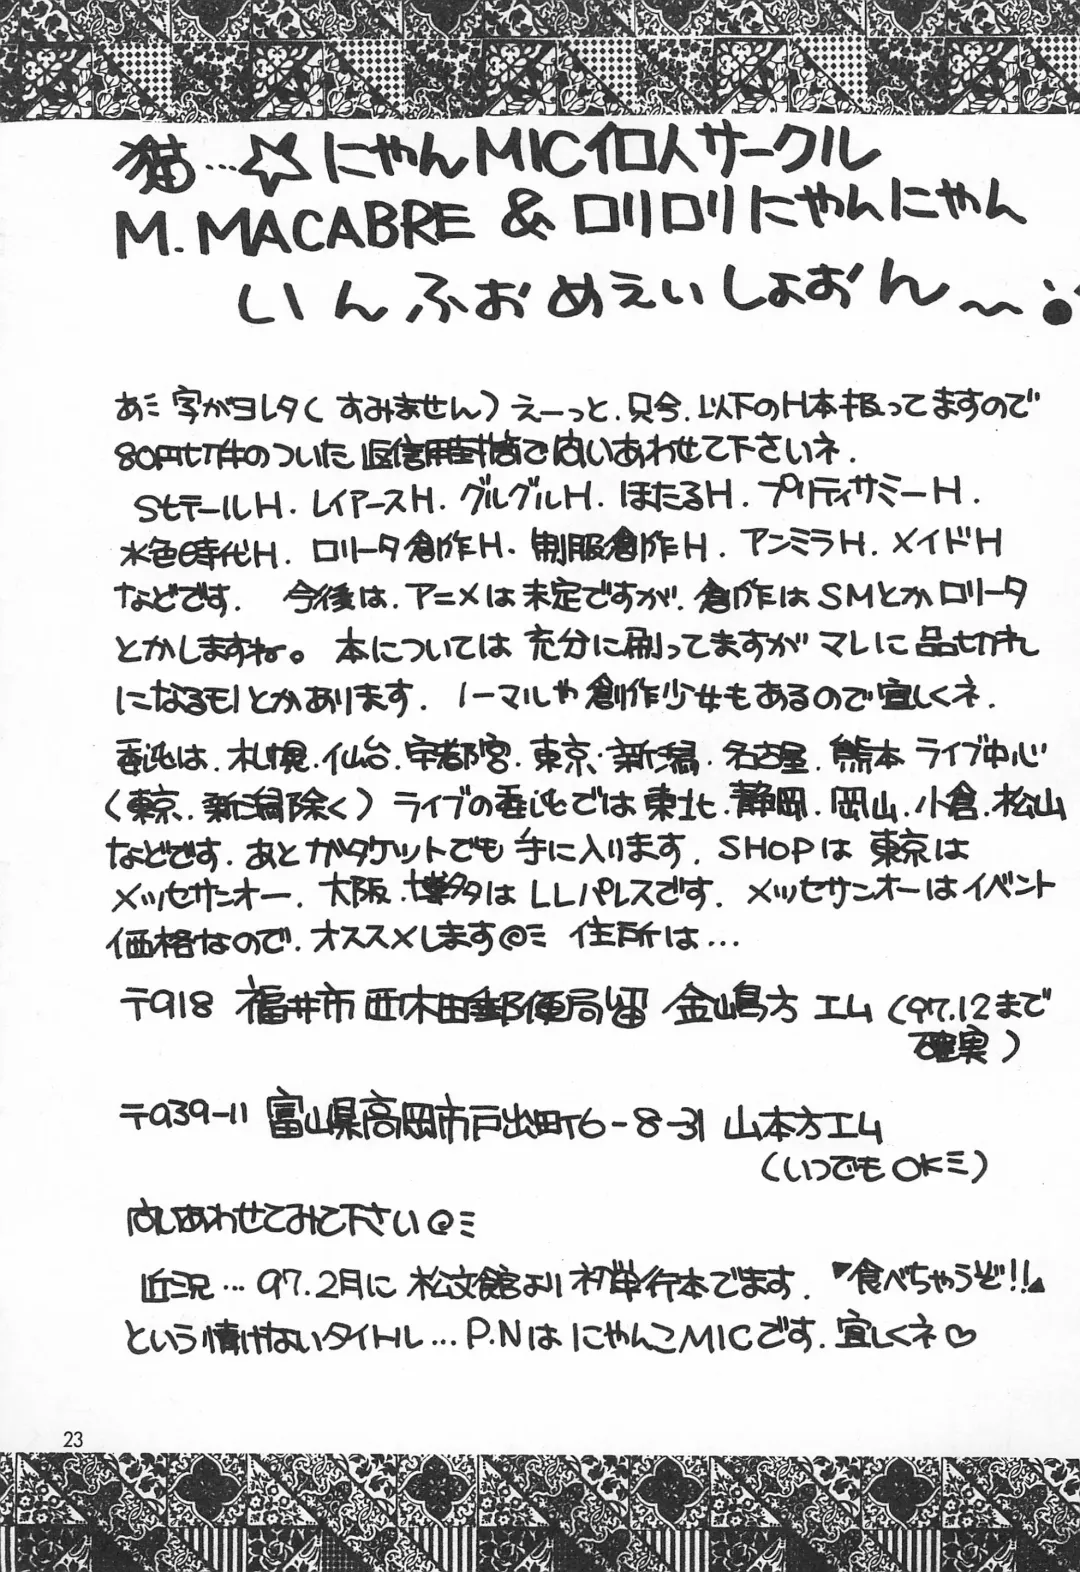 猫…☆にゃんMIC個人サークル
M.MACABRE & ロリロリにゃんにゃん
いんふぉめぇいしょおん〜
あミ 字がヨレタ(すみません) えーっと、只今、以下のH本扱ってますので
80円切手のついた返信用封筒で問いあわせて下さいネ.
StテールH. レイアースH. グルグルH. ほたるH. プリティサミーH.
水色時代H. ロリータ創作H. 制服創作H. アンミラH. メイドH
などです. 今後は、アニメは未定ですが、創作はSMとかロリータ
とかしますね。本については充分に刷ってますがマレに品切れ
になるモノとかあります. ノーマルや創作少女もあるので宜しくネ.
委託は、札幌.仙台.宇都宮.東京.新潟.名古屋.熊本 ライブ中心
(東京.新潟除く) ライブの委託では東北.静岡.岡山.小倉.松山
などです. あとガタケットでも手に入ります. SHOPは東京は
メッセサンオー. 大阪.博多はLLパレスです. メッセサンオーはイベント
価格なので、オススメします@ミ 住所は…
〒918 福井市西木田郵便局留 金嶋方 エム ('97.12まで
確実)
〒939-11 富山県高岡市戸出町6-8-31 山本方エム
(いつでもOKミ)
問いあわせてみて下さい@ミ
近況… 97.2月に松文館より初単行本でます. 〝食べちゃうぞ!!〟
という情けないタイトル… P.NはにゃんこMICです. 宜しくネ♡
23